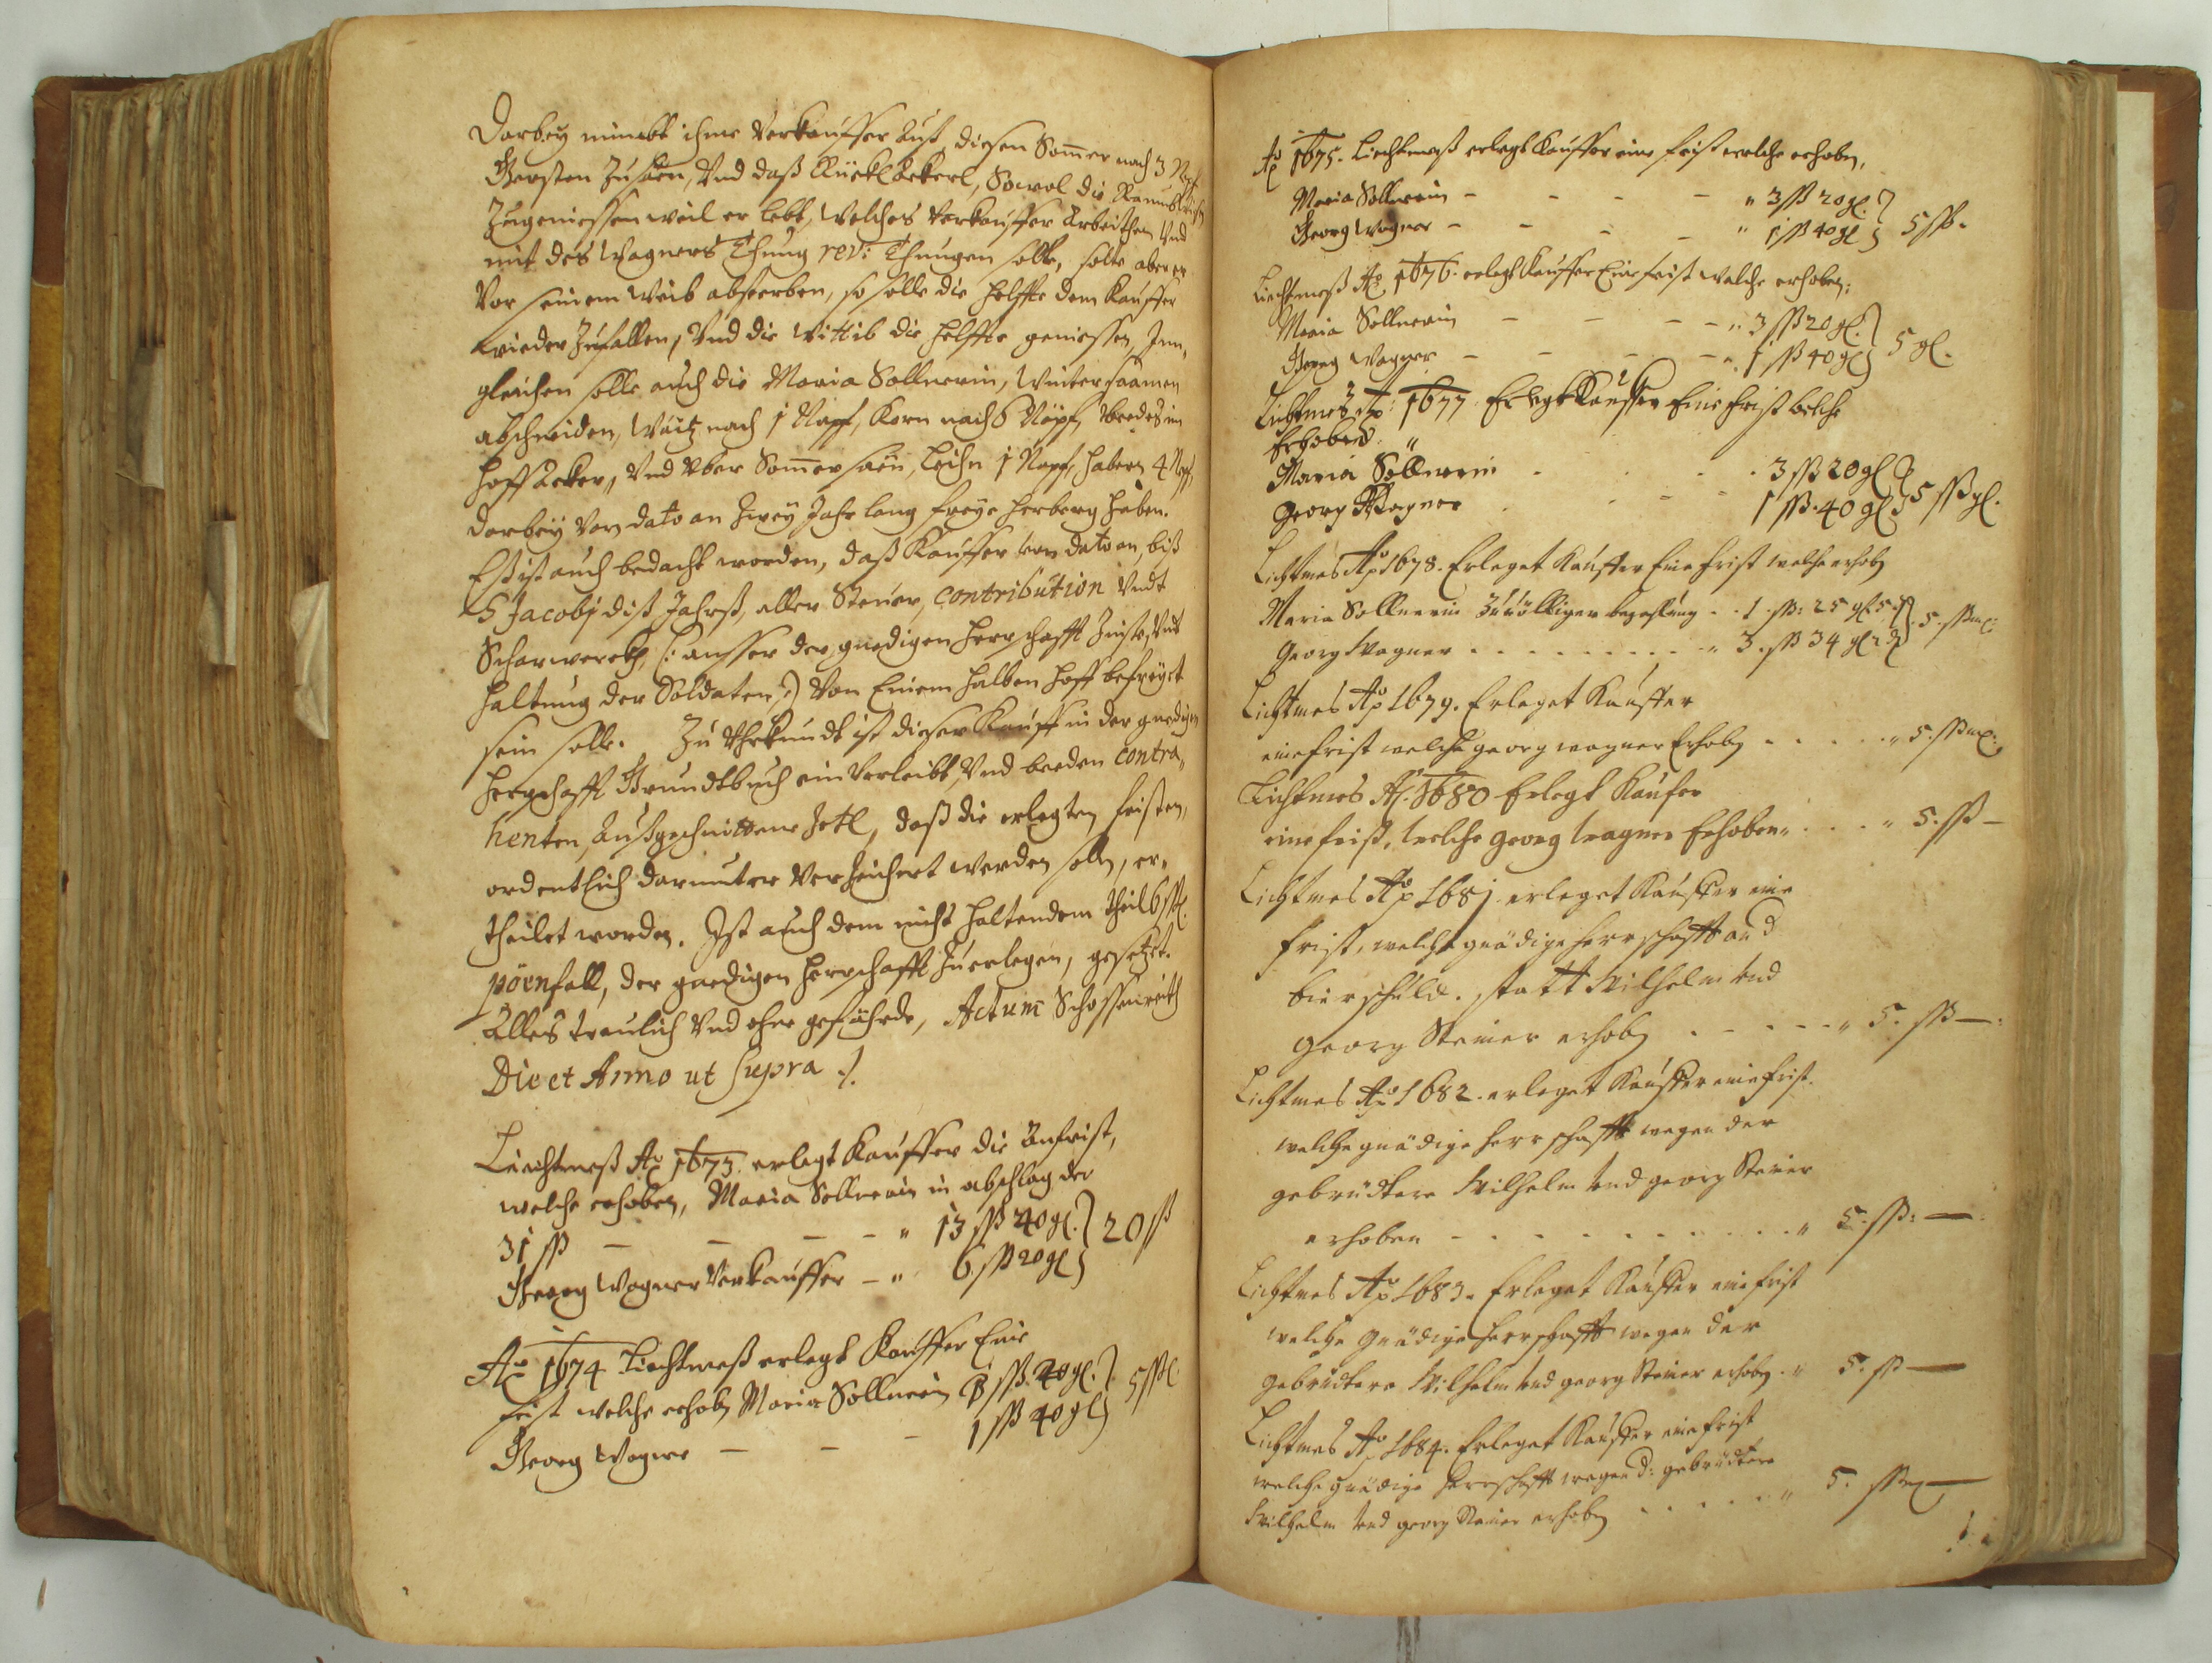 Darbey nimbt ihme Verkauffer Auß, diesen Som̄er nach 3 Npf
Gersten Zusäen, Vnd daß Stückl Äckerl, Sowol die
Zugeniessen weil er lebt, Welches Verkauffer Arbeithen Vnd
mit des Wagners Thung rev: Thungen solle, solte aber er
Vor seinem Weib absterben, so solle die helffte dem Kauffer
wieder Zufallen, Vnd die Wittib die helffte geniessen, Inn„
gleichen solle auch die Maria Sollnerin, Wintersaamen
abschneiden, Waitz nach 1 Napf, Korn nach 6 Näpf, beedes im
hoff Acker, Vnd Vber Som̄er säen, Lein 1 Napf, habern 4 Npf,
darbey Von dato an Zwey Jahr lang freye herberg haben.
Eß ist auch bedacht worden, daß Kauffer von dato an, biß
S Jacobj diß Jahrß, aller Steuer, contribution Vndt
Scharwerck, (: ausser der gnedigen herrschafft Zinß, Vnd
haltung der Soldaten,:) Von Einem halben hoff befreyet
sein solle. Zu Vhrkundt ist dieser Kauff in der gnedigen
herrschafft Grundtbuch ein Verleibt, Vnd beeden contra„
henten, Außgeschnittene Zetl, daß die erlegten fristen,
ordentlich darunter Verzeichnet werden solln, er„
theilet worden. Ist auch dem nicht haltendem theil 6 ßß.
pöenfall, der gnedigen herrschafft Zuerlegen, gesetzt.
Alles treulich Vnd ohne gefährde, Actum Schossenreith
Die et Anno ut supra ./.
Liechtmeß Aō 1673. erlegt Kauffer die Anfrist,
welche erhoben, Maria Sollnerin in abschlag der
31 ßß — — — — „ 13 ßß 40 gl. } 20 ß
Georg Wagner Verkauffer — „ 6 ßß 20 gl }
Aō 1674 Liechtmeß erlegt Kauffer Eine
frist welche erhob Maria Sollnerin 3 ßß 20 gl. } 5 ßß
Georg Wagner — — — 1 ßß 40 gl }
Aō 1675. Liechtmeß erlegt Kauffer eine frist welche erhoben,
Maria Sollnerin — — — — „ 3 ßß 20 gl. } 5 ßß.
Georg Wagner — — — — „ 1 ßß 40 gl }
Liechtmeß Aō 1676. erlegt Kauffer Eine frist welche erhoben:
Maria Sollnerin — — — — „ 3 ßß 20 gl. } 5 gl.
Georg Wagner — — — — „ 1 ßß 40 gl }
Lichtmeß Aō: 1677 Erlegt Kauffer Eine frist welche
Erhoben: „
Maria Söllnerin . . . . 3 ßß 20 gl } 5 ßß gl.
Georg Wagner . . . . 1 ßß. 40 gl }
Lichtmes Ao 1678. Erleget Kauffer Eine frist welche erhob
Maria Sollnerin Zu völliger bezahlung . . 1. ßß: 25 gl 5 } 5. ßß
Georg Wagner . . . . . . . . . „ 3. ßß 34 gl 2 }
Lichtmes Ao 1679. Erleget Kauffer
eine frist welche georg wagner Erhob . . . . . „ 5. ßß
Lichtmes Ao. 1680 Erlegt Kaufer
eine frist, welche georg wagner Erhoben „ . . . „ 5. ßß —
Lichtmes Ao 1681 erleget Kauffer eine
frist, welche gnädige herrschafft an d
bierschuld. statt Wilhelm Vnd
georg Steiner erhob . — . — . — „ 5. ßß —:
Lichtmes Ao 1682. erleget Kauffer eine frist.
welche gnädige herrschafft wegen der
gebrüdtere Wilhelm Vnd georg Steiner
erhoben — . . . . . . . . . „ 5. ßß: —.
Lichtmes Ao 1683. Erleget Kauffer eine frist
welche Gnädige herrschafft wegen der
gebrüdtere Wilhelm Vnd georg Steiner erhob . „ 5. ß —
Lichtmes Ao 1684. Erleget Kauffer eine frist
welche gnädige herrschafft wegen d: gebrüdtere
Wilhelm Vnd georg Steiner erhob . . . . . „ 5. ßß —